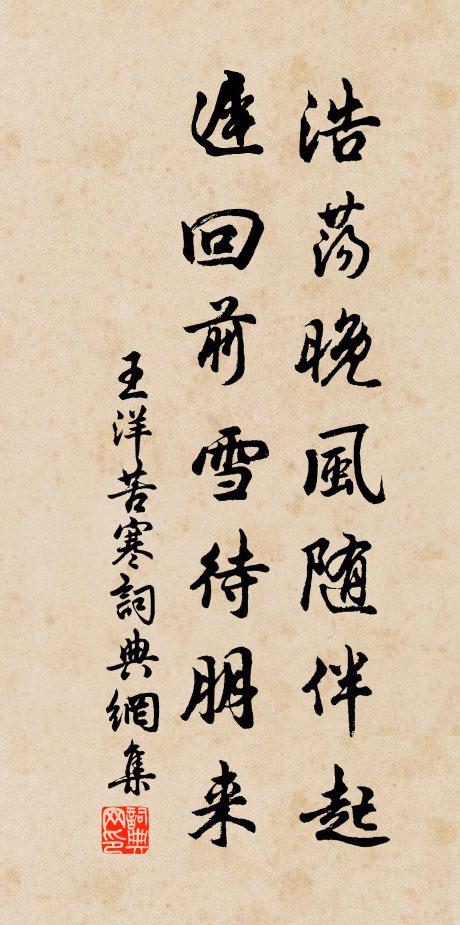 浩荡晚風随伴起
遲回前雪待朋来
王洋苦寒詞典網集
詞典网印